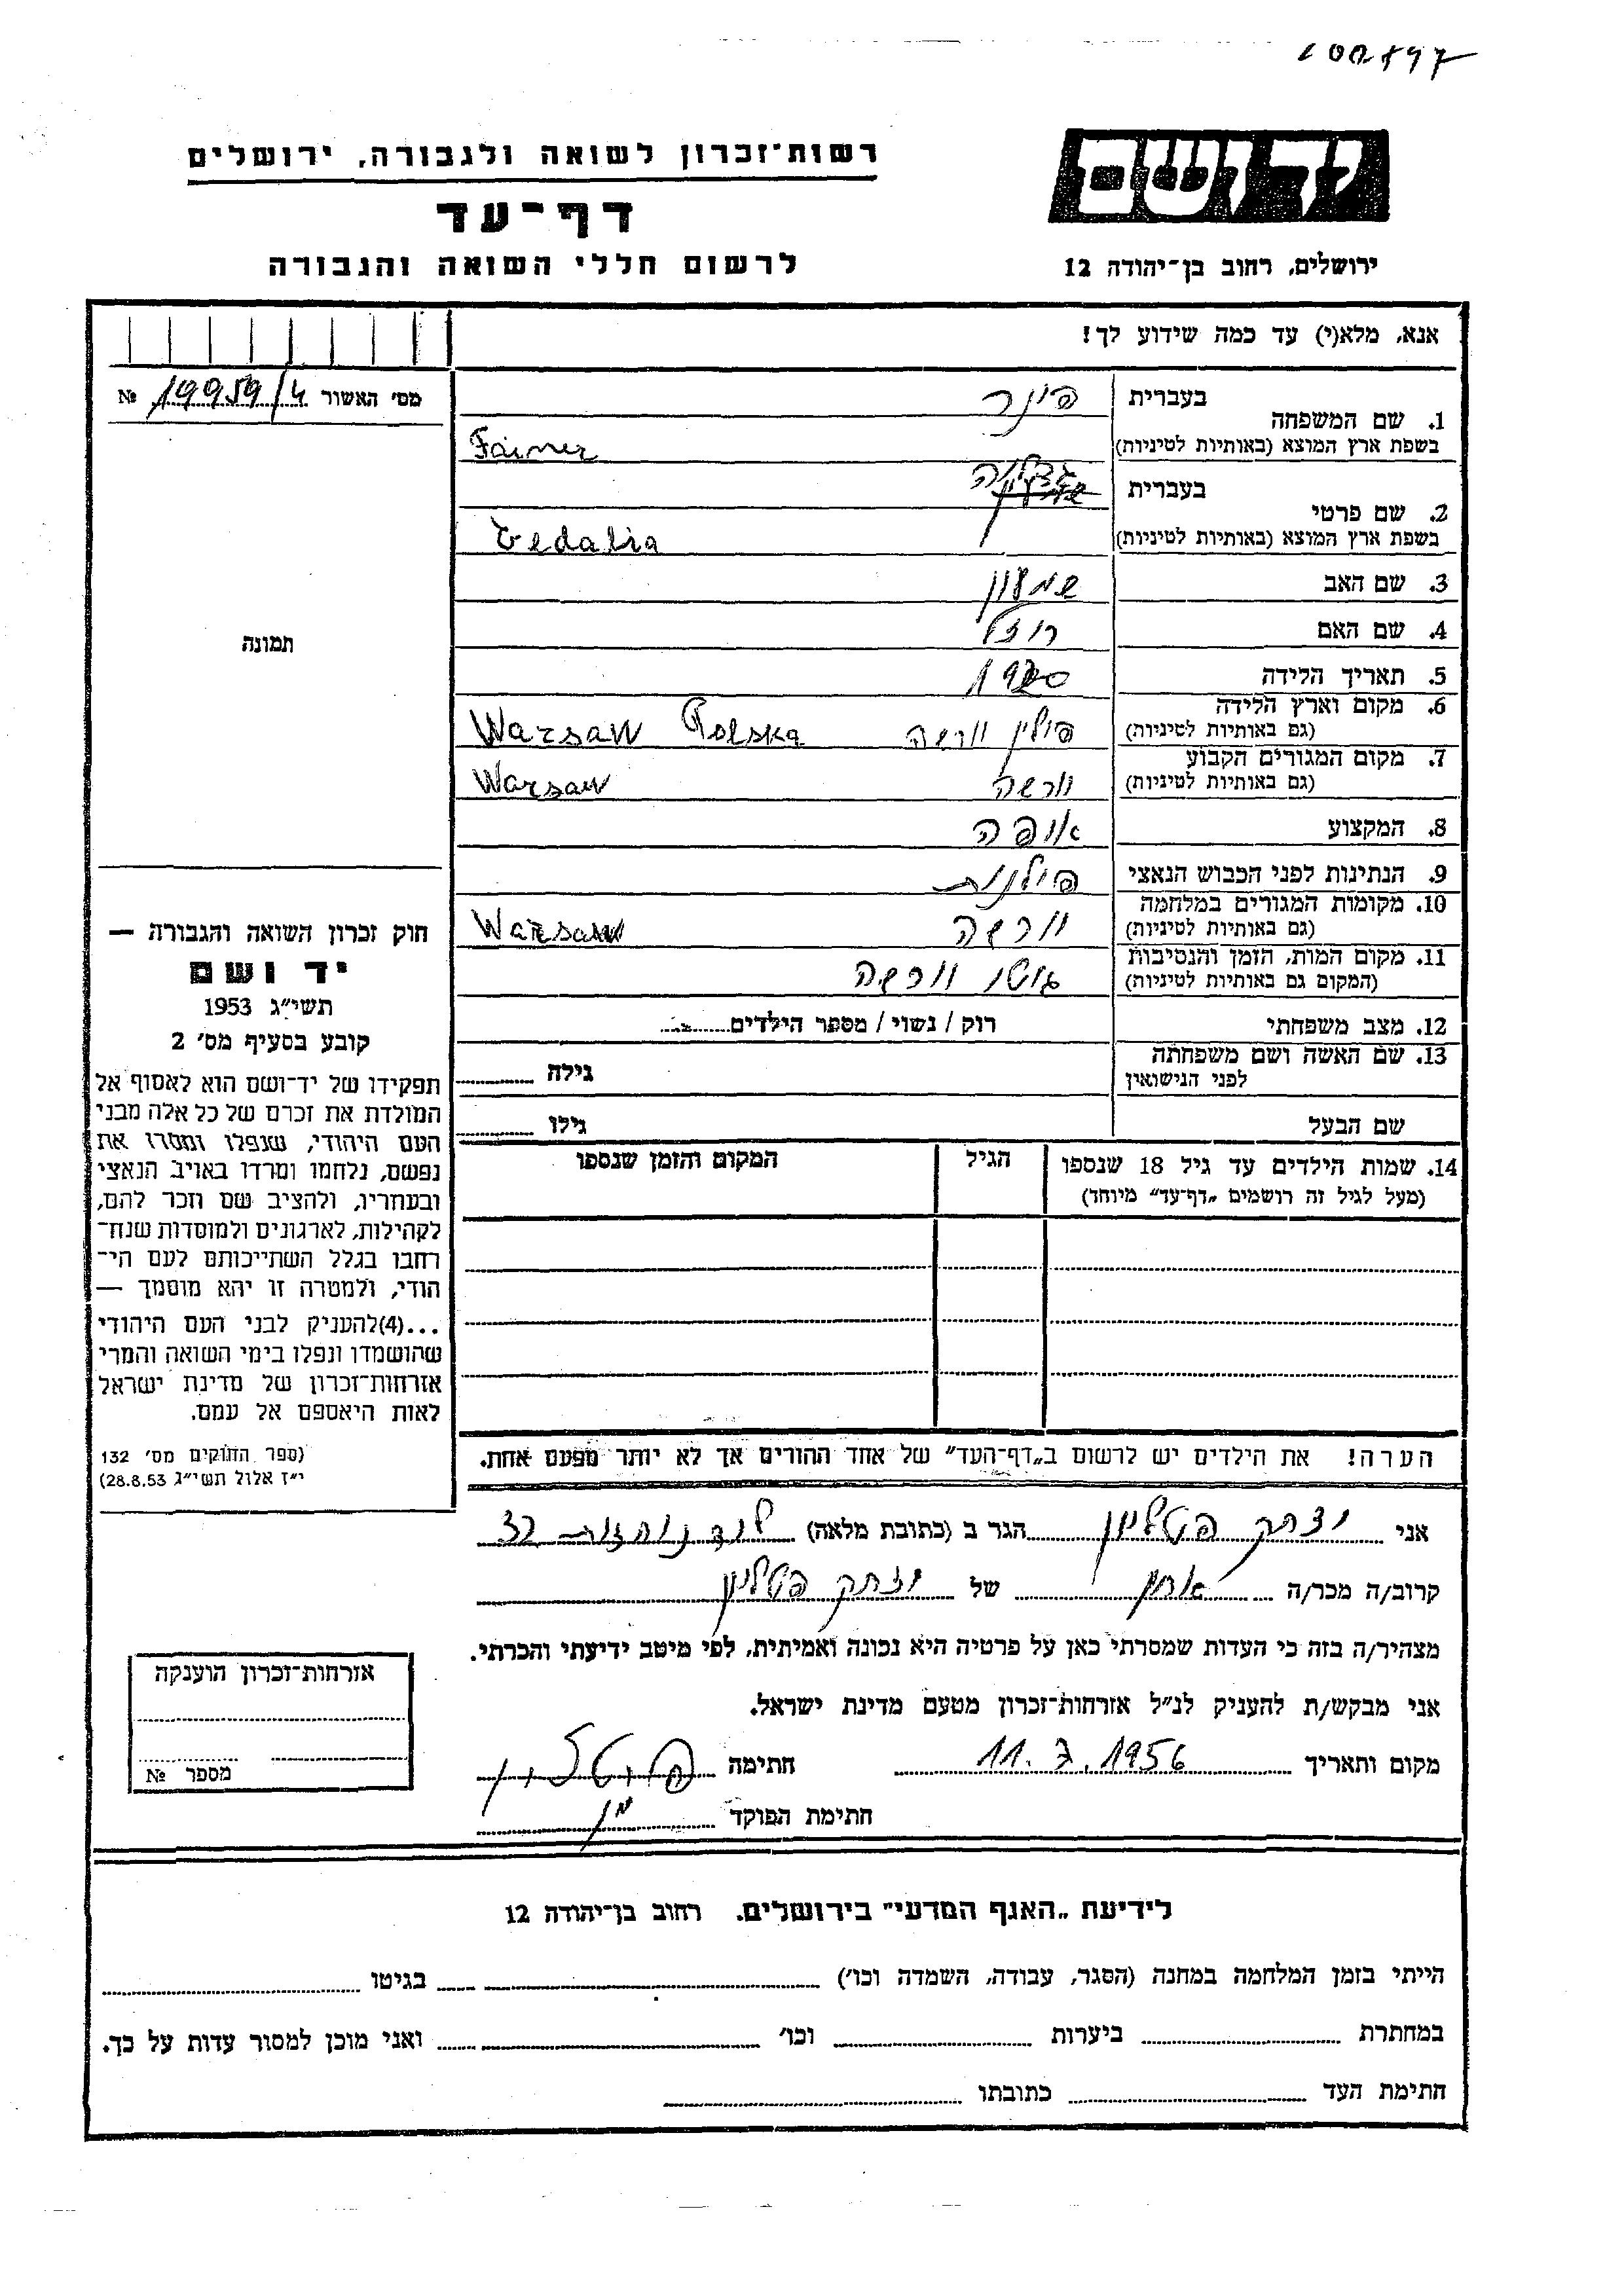 רשות־זכרון לשואה ולגבורה, ירושלים
יד ושם
דף־עד
לרשום חללי השואה והגבורה
ירושלים, רחוב בן־יהודה 12
אנא, מלא(י) עד כמה שידוע לך!
מס׳ האשור 19959/4 №
1. שם המשפחה
בעברית פינר
בשפת ארץ המוצא (באותיות לטיניות) Fainer
2. שם פרטי
בעברית גדליה
בשפת ארץ המוצא (באותיות לטיניות) Gedalia
3. שם האב שמעון
4. שם האם רוזל
5. תאריך הלידה
6. מקום וארץ הלידה
(גם באותיות לטיניות) פולין וורשה Warsaw Polska
7. מקום המגורים הקבוע
(גם באותיות לטיניות) וורשה Warsaw
8. המקצוע אופה
9. הנתינות לפני הכבוש הנאצי פולנית
10. מקומות המגורים במלחמה
(גם באותיות לטיניות) וורשה Warsaw
11. מקום המות, הזמן והנסיבות
(המקום גם באותיות לטיניות) גיטו וורשה
12. מצב משפחתי רוק / נשוי / מספר הילדים
13. שם האשה ושם משפחתה
לפני הנישואין גילה
שם הבעל גילו
14. שמות הילדים עד גיל 18 שנספו הגיל המקום והזמן שנספו
(מעל לגיל זה רושמים „דף־עד״ מיוחד)
תמונה
חוק זכרון השואה והגבורה —
יד ושם
תשי״ג 1953
קובע בסעיף מס׳ 2
תפקידו של יד־ושם הוא לאסוף אל
המולדת את זכרם של כל אלה מבני
העם היהודי, שנפלו ומסרו את
נפשם, נלחמו ומרדו באויב הנאצי
ובעוזריו, ולהציב שם וזכר להם,
לקהילות, לארגונים ולמוסדות שנח־
רחבו בגלל השתייכותם לעם הי־
הודי, ולמטרה זו יהא מוסמך —
...(4)להעניק לבני העם היהודי
שהושמדו ונפלו בימי השואה והמרי
אזרחות־זכרון של מדינת ישראל
לאות היאספם אל עמם.
(ספר החוקים מס׳ 132
י״ז אלול תשי״ג 28.8.53)
הערה! את הילדים יש לרשום ב„דף־העד״ של אחד ההורים אך לא יותר מפעם אחת.
אני יצחק הגר ב (כתובת מלאה) לוד 32
קרוב/ה מכר/ה של יצחק
מצהיר/ה בזה כי העדות שמסרתי כאן על פרטיה היא נכונה ואמיתית, לפי מיטב ידיעתי והכרתי.
אני מבקש/ת להעניק לנ״ל אזרחות־זכרון מטעם מדינת ישראל.
מקום ותאריך 11.7.1956 חתימה
חתימת הפוקד
אזרחות־זכרון הוענקה
מספר №
לידיעת „האגף המדעי״ בירושלים. רחוב בן־יהודה 12
הייתי בזמן המלחמה במחנה (הסגר, עבודה, השמדה וכו׳) בגיטו
במחתרת ביערות וכו׳ ואני מוכן למסור עדות על כך.
חתימת העד כתובתו